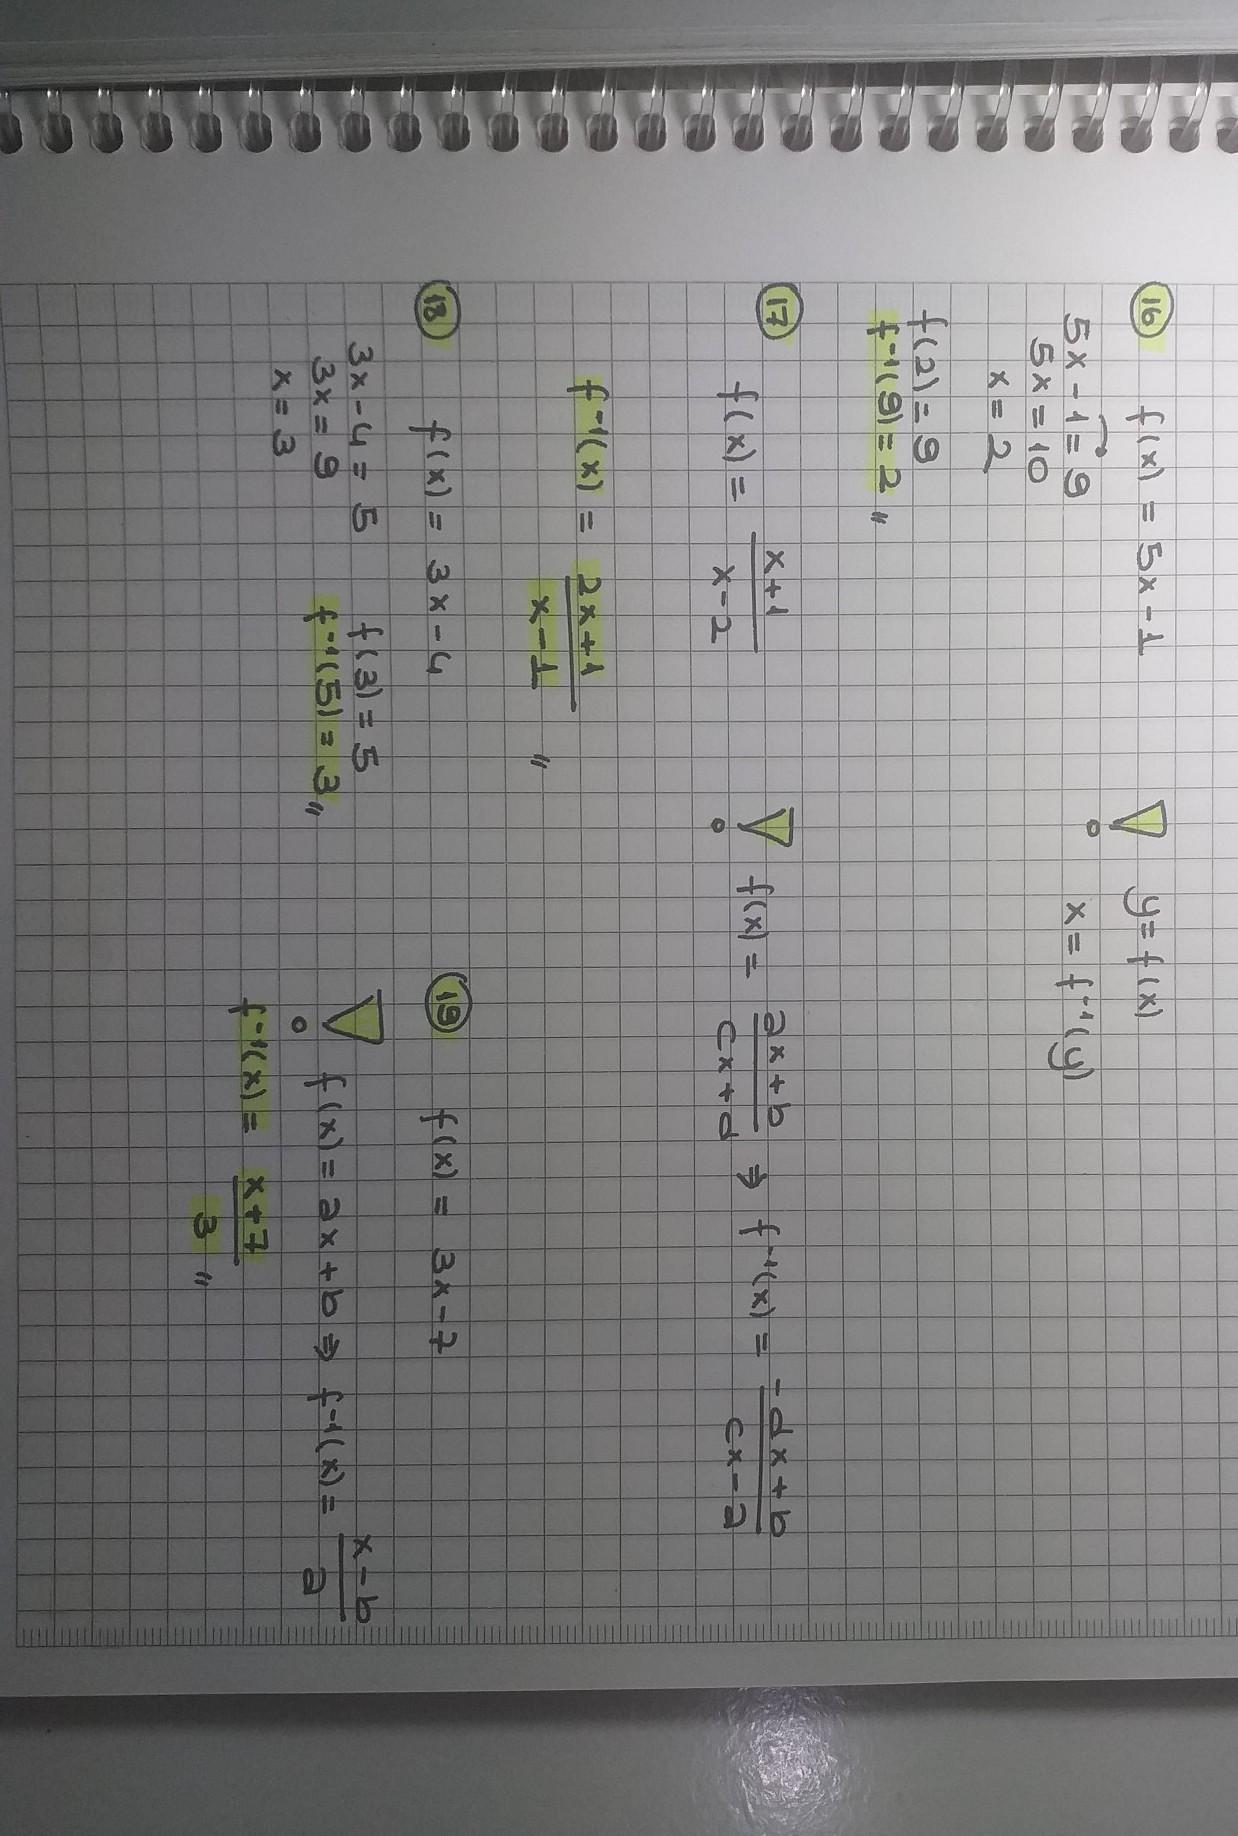 16 f(x) = 5x - 1
5x - 1 = 9
5x = 10
x = 2
f(2) = 9
f⁻¹(9) = 2 "
y = f(x)
x = f⁻¹(y)
17 f(x) = (x+1)/(x-2)
f(x) = (ax+b)/(cx+d) ⇒ f⁻¹(x) = (-dx+b)/(cx-a)
f⁻¹(x) = (2x+1)/(x-1) "
18 f(x) = 3x - 4
3x - 4 = 5
3x = 9
x = 3
f(3) = 5
f⁻¹(5) = 3 "
19 f(x) = 3x - 7
f(x) = ax + b ⇒ f⁻¹(x) = (x-b)/a
f⁻¹(x) = (x+7)/3 "